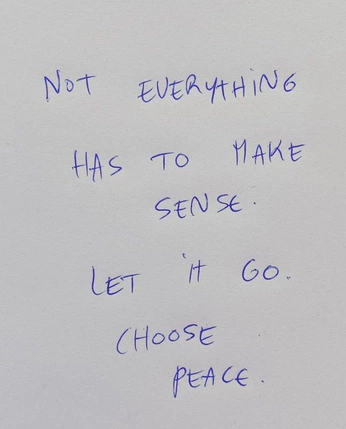 NOT EVERYTHING
HAS TO MAKE
SENSE.
LET IT GO.
CHOOSE
PEACE.